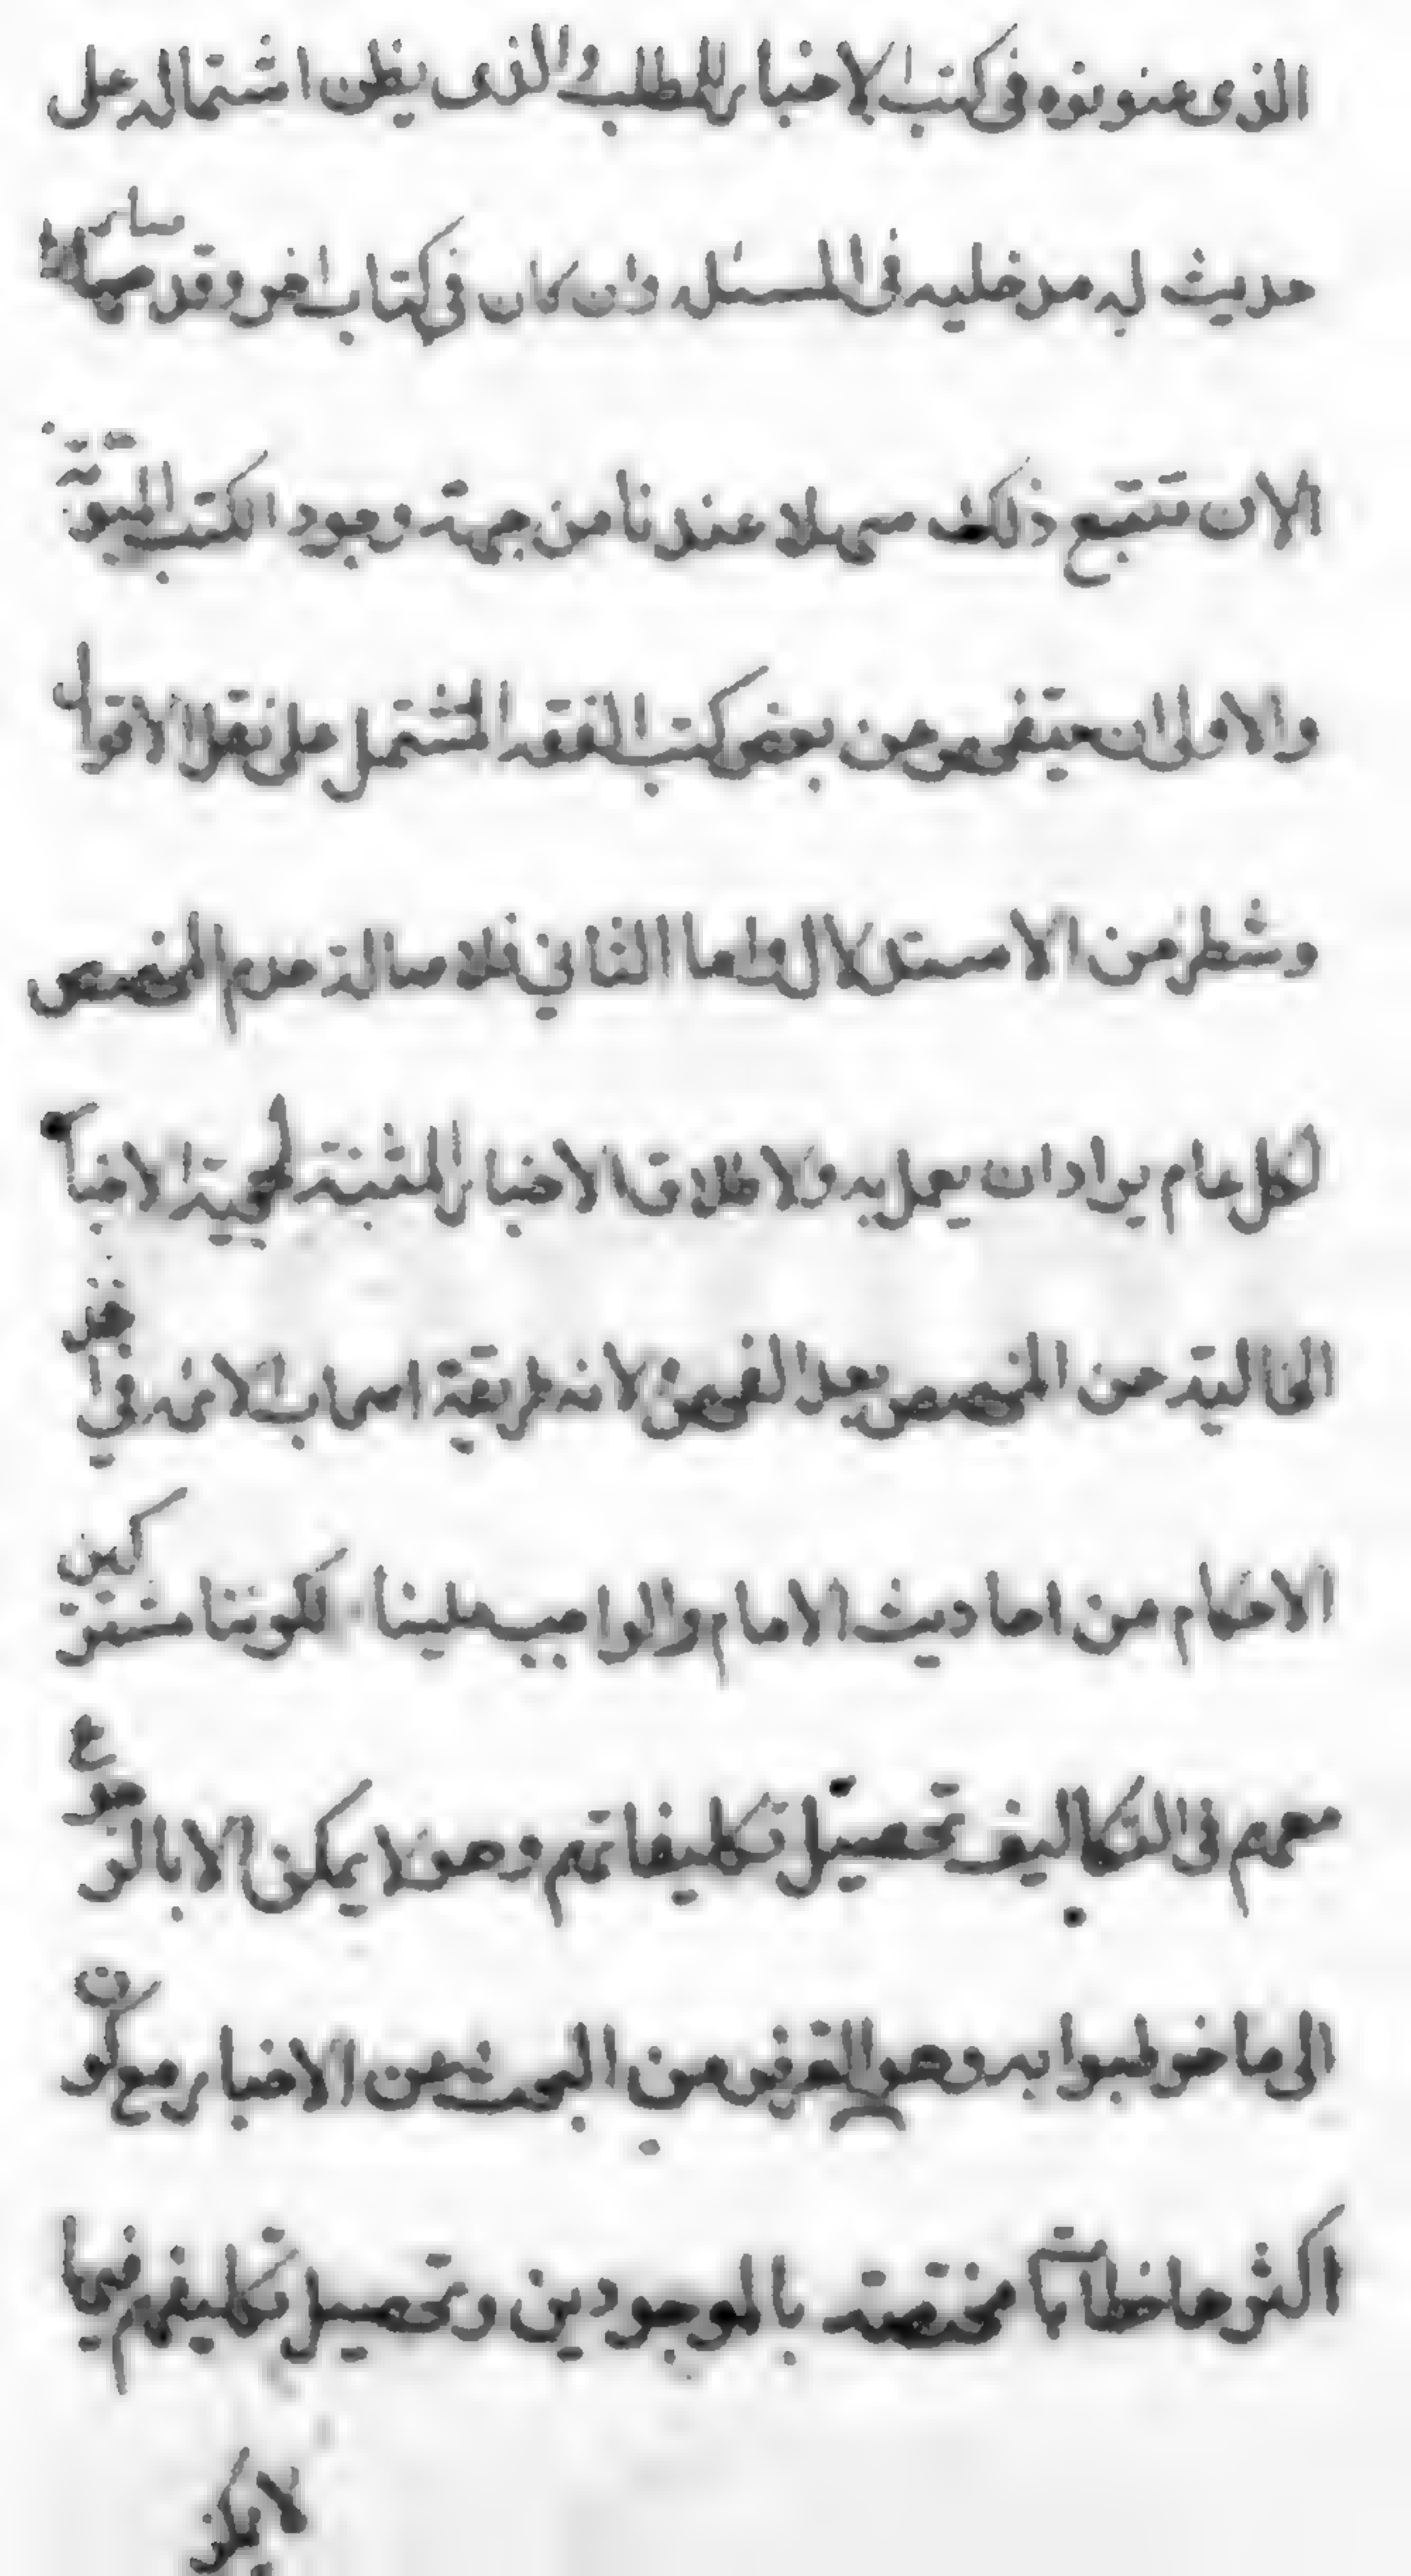 الذى عنونوه فى كتب الاخبار للمطلب والذى يظن اشتماله على
حديث له مدخليه فى المسئله وان كان فى كتاب اخر وقد صار
الان تتبع ذلك سهلا عندنا من جهة وجود الكتب المبوبة
والاولى ان يتفحص من بعض كتب الفقه المشتمل على نقل الاقوال
وشطر من الاستدلال واما الثانى فلاصالة عدم المخصص
لكل عام يراد ان يعمل به ولاطلاق الاخبار المثبتة لحجية الاخبار
الخالية عن المخصص بعد الفحص لانه طريقة اصحاب الائمه فى اخذ
الاحكام من احاديث الامام والواجب علينا لكوننا مشتركين
معهم فى التكاليف تحصيل تكليفاتهم وهو لا يمكن الا بالرجوع
الى ما خوطبوا به وهو الغرض من البحث عن الاخبار مع كون
اكثرها خطابات مختصة بالموجودين وتحصيل تكليفهم فيما
لا يكن